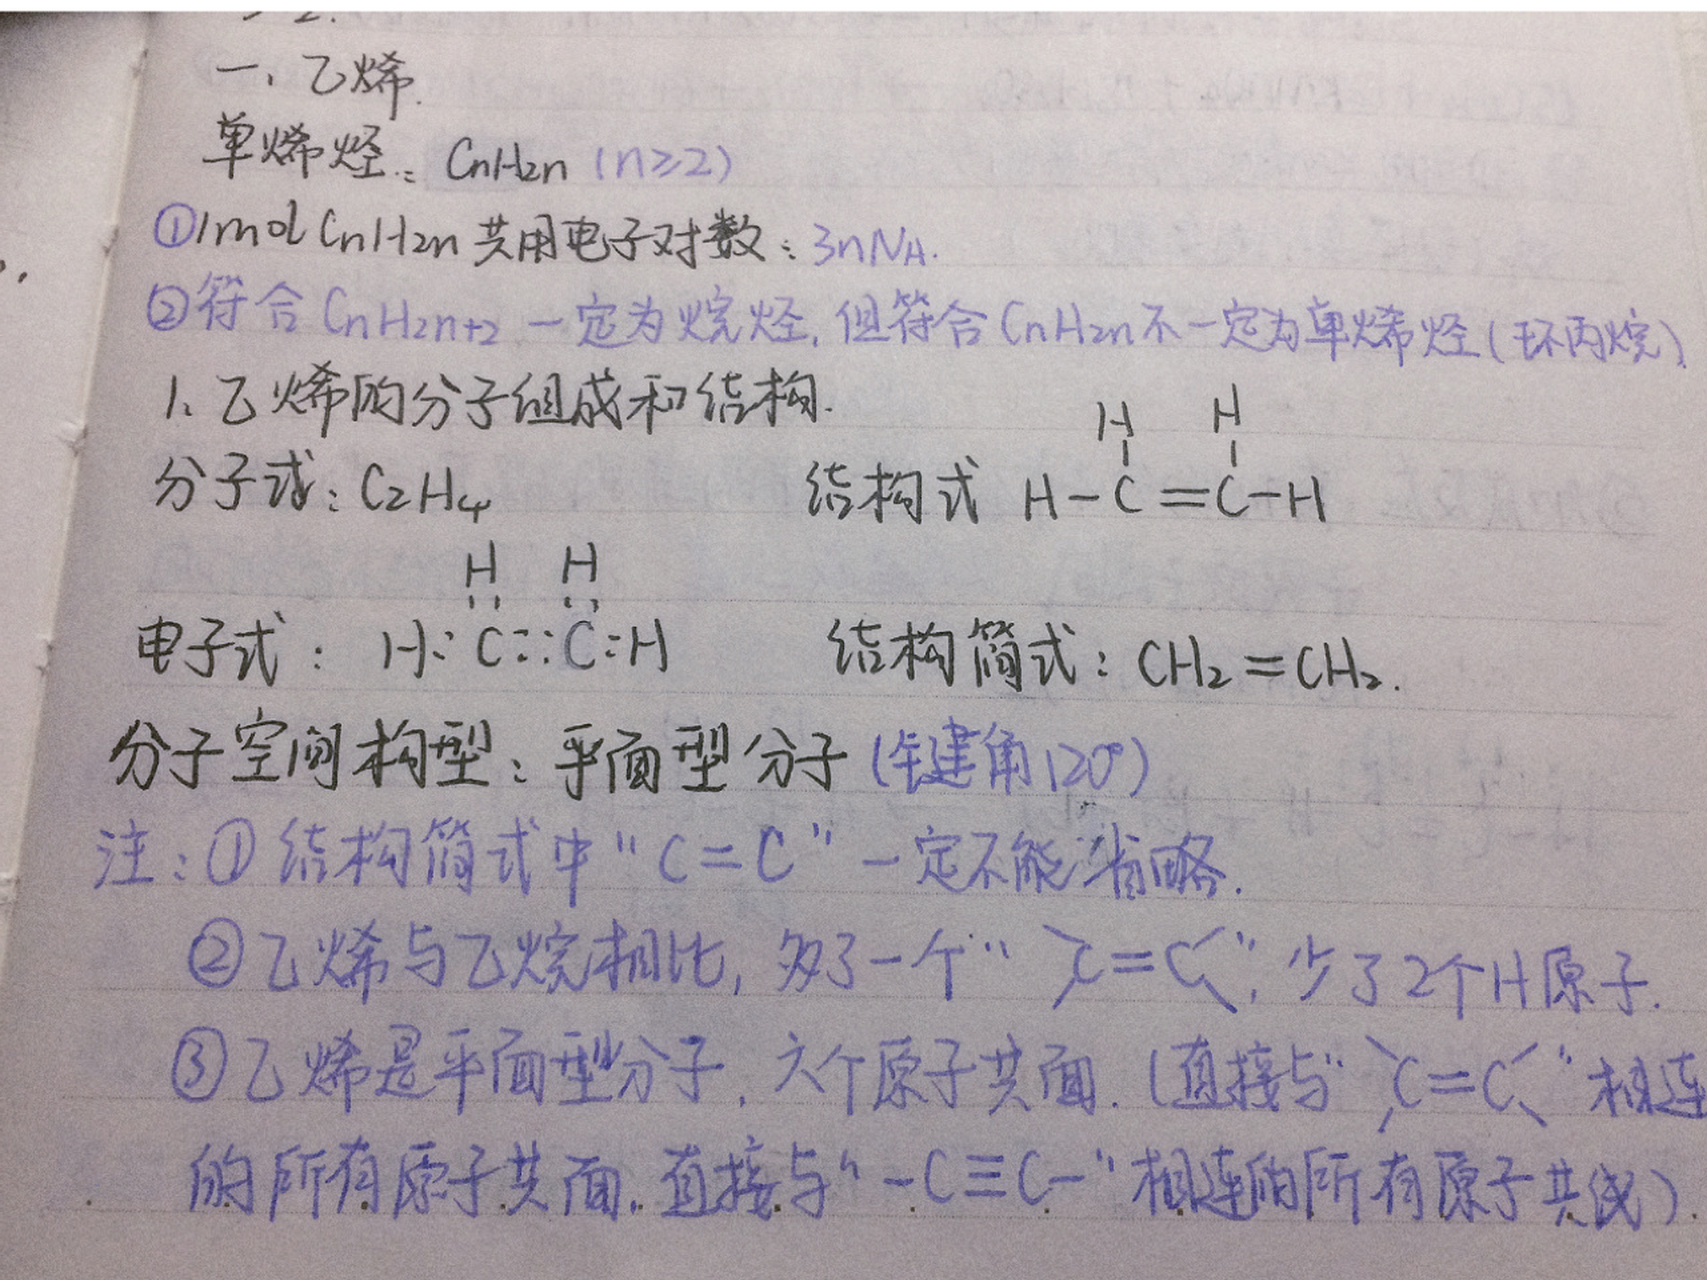 一、乙烯.
单烯烃: CnH2n (n≥2)
①1mol CnH2n 共用电子对数: 3nNA.
②符合CnH2n+2 一定为烷烃, 但符合CnH2n不一定为单烯烃(环丙烷)
1、乙烯的分子组成和结构.
H H
分子式: C2H4 结构式 H-C=C-H
H H
电子式: H:C::C:H 结构简式: CH2=CH2.
分子空间构型: 平面型分子 (键角120°)
注: ①结构简式中"C=C"一定不能省略.
②乙烯与乙烷相比, 多了一个">C=C<", 少了2个H原子.
③乙烯是平面型分子, 六个原子共面. (直接与">C=C<"相连
的所有原子共面. 直接与"-C≡C-"相连的所有原子共线).